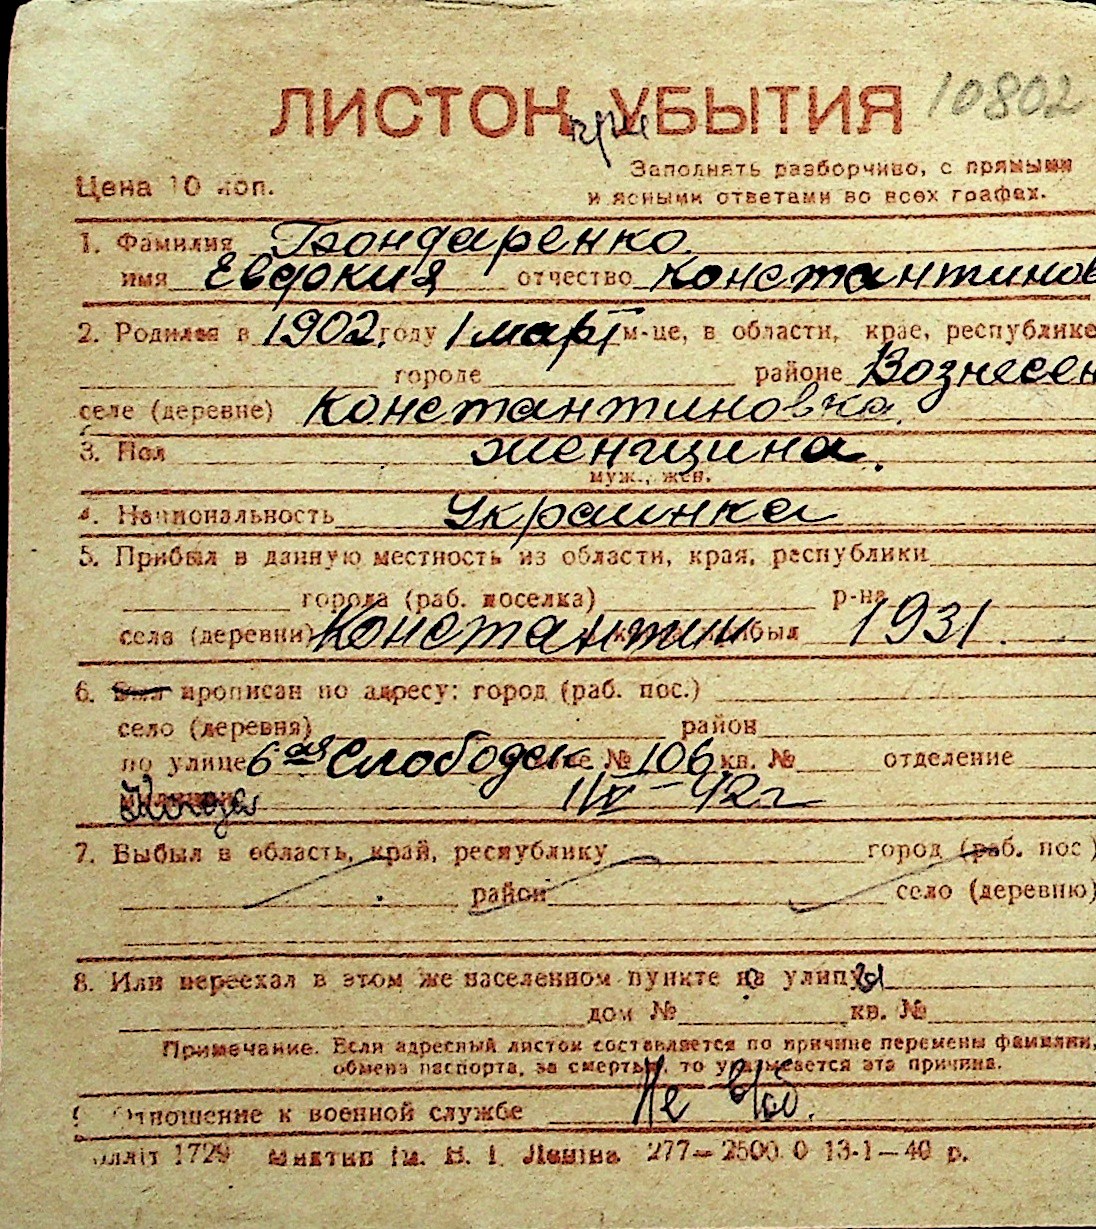 ЛИСТОК УБЫТИЯ 10802
при
Заполнять разборчиво, с прямыми
Цена 10 коп.
и ясными ответами во всех графах.
1. Фамилия Бондаренко
имя Евдокия отчество Константинов
2. Родился в 1902 году 1 март м-це, в области, крае, республике
городе районе Вознесен
селе (деревне) Константиновка.
3. Пол женщина.
муж., жен.
4. Национальность Украинка
5. Прибыл в данную местность из области, края, республики
города (раб. поселка) р-на
села (деревни) Константин прибыл 1931.
6. прописан по адресу: город (раб. пос.)
село (деревня) район
по улице 6ая Слободск № 106 кв. № отделение
42 г
7. Выбыл в область, край, республику город (раб. пос.)
район село (деревню)
8. Или переехал в этом же населенном пункте на улицу
дом № кв. №
Примечание. Если адресный листок составляется по причине перемены фамилии,
обмена паспорта, за смертью, то указывается эта причина.
9. Отношение к военной службе Не в/об.
лліт 1729 Миктип ім. В. І. Леніна 277—2500.0 13-1—40 р.